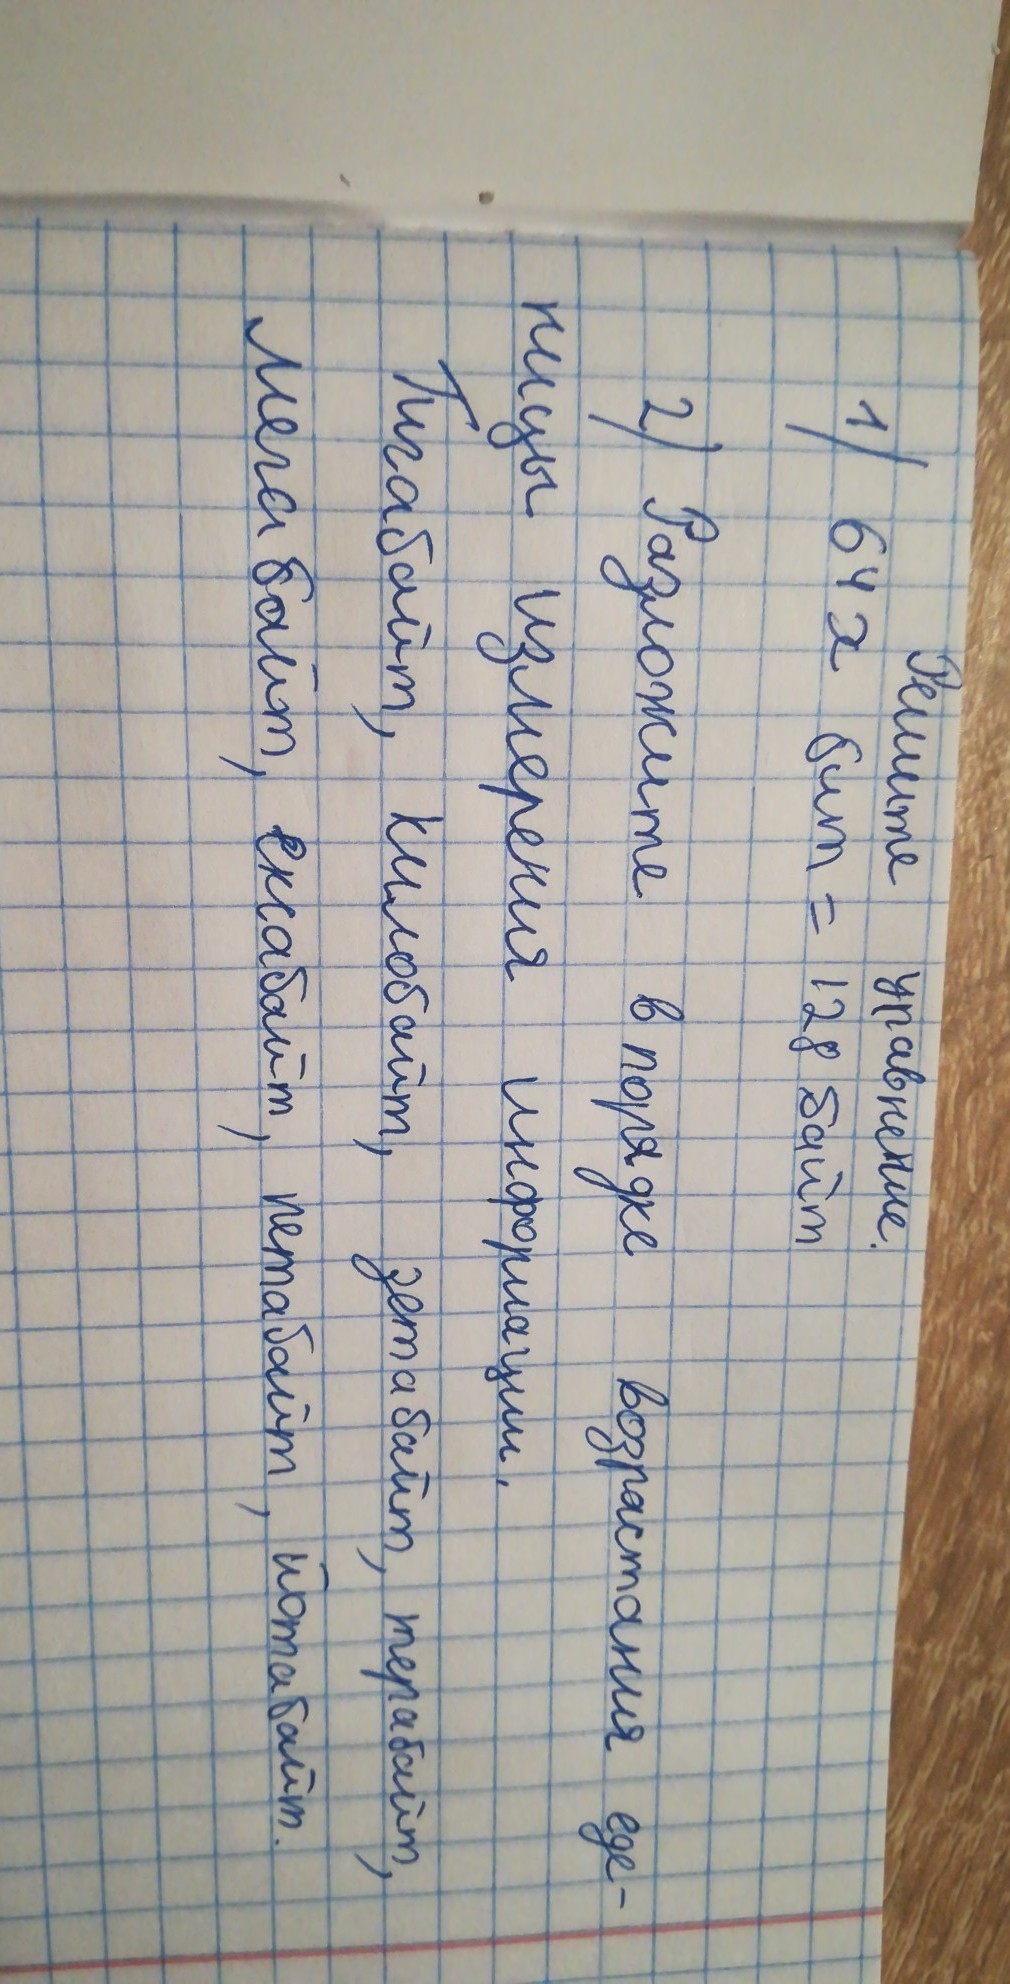 Решите уравнение.
1) 64x бит = 128 байт
2) Разложите в порядке возрастания еде-
ницы измерения информации.
Гигабайт, килобайт, зетабайт, терабайт,
Мегабайт, ексабайт, петабайт, йотабайт.